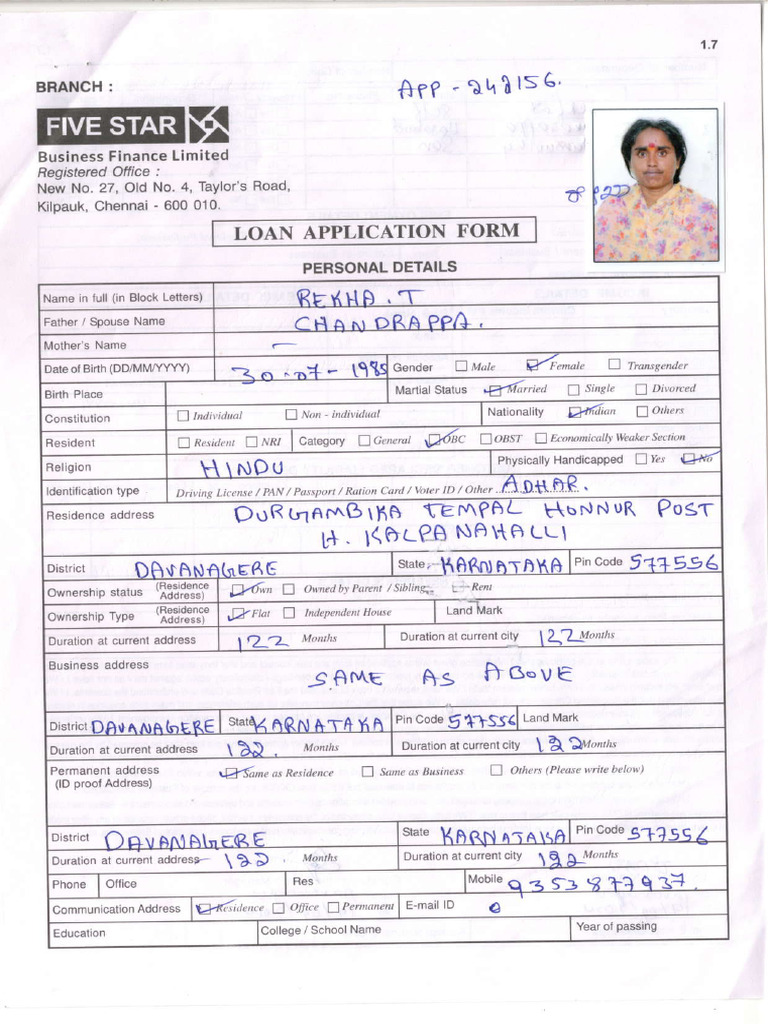 1.7
BRANCH :
APP - 242156.
FIVE STAR
Business Finance Limited
Registered Office :
New No. 27, Old No. 4, Taylor's Road,
Kilpauk, Chennai - 600 010.
LOAN APPLICATION FORM
PERSONAL DETAILS
Name in full (in Block Letters) REKHA.T
Father / Spouse Name CHANDRAPPA.
Mother's Name —
Date of Birth (DD/MM/YYYY) 30-07-1985 Gender Male Female Transgender
Birth Place Martial Status Married Single Divorced
Constitution Individual Non - individual Nationality Indian Others
Resident Resident NRI Category General OBC OBST Economically Weaker Section
Religion HINDU Physically Handicapped Yes No
Identification type Driving License / PAN / Passport / Ration Card / Voter ID / Other ADHAR.
Residence address DURGAMBIKA TEMPAL HONNUR POST
H. KALPANAHALLI
District DAVANAGERE State KARNATAKA Pin Code 577556
Ownership status (Residence Address) Own Owned by Parent / Sibling Rent
Ownership Type (Residence Address) Flat Independent House Land Mark
Duration at current address 122 Months Duration at current city 122 Months
Business address
SAME AS ABOVE
District DAVANAGERE State KARNATAKA Pin Code 577556 Land Mark
Duration at current address 122. Months Duration at current city 122 Months
Permanent address Same as Residence Same as Business Others (Please write below)
(ID proof Address)
District DAVANAGERE State KARNATAKA Pin Code 577556
Duration at current address 122. Months Duration at current city 122 Months
Phone Office Res Mobile 9353877937.
Communication Address Residence Office Permanent E-mail ID
Education College / School Name Year of passing